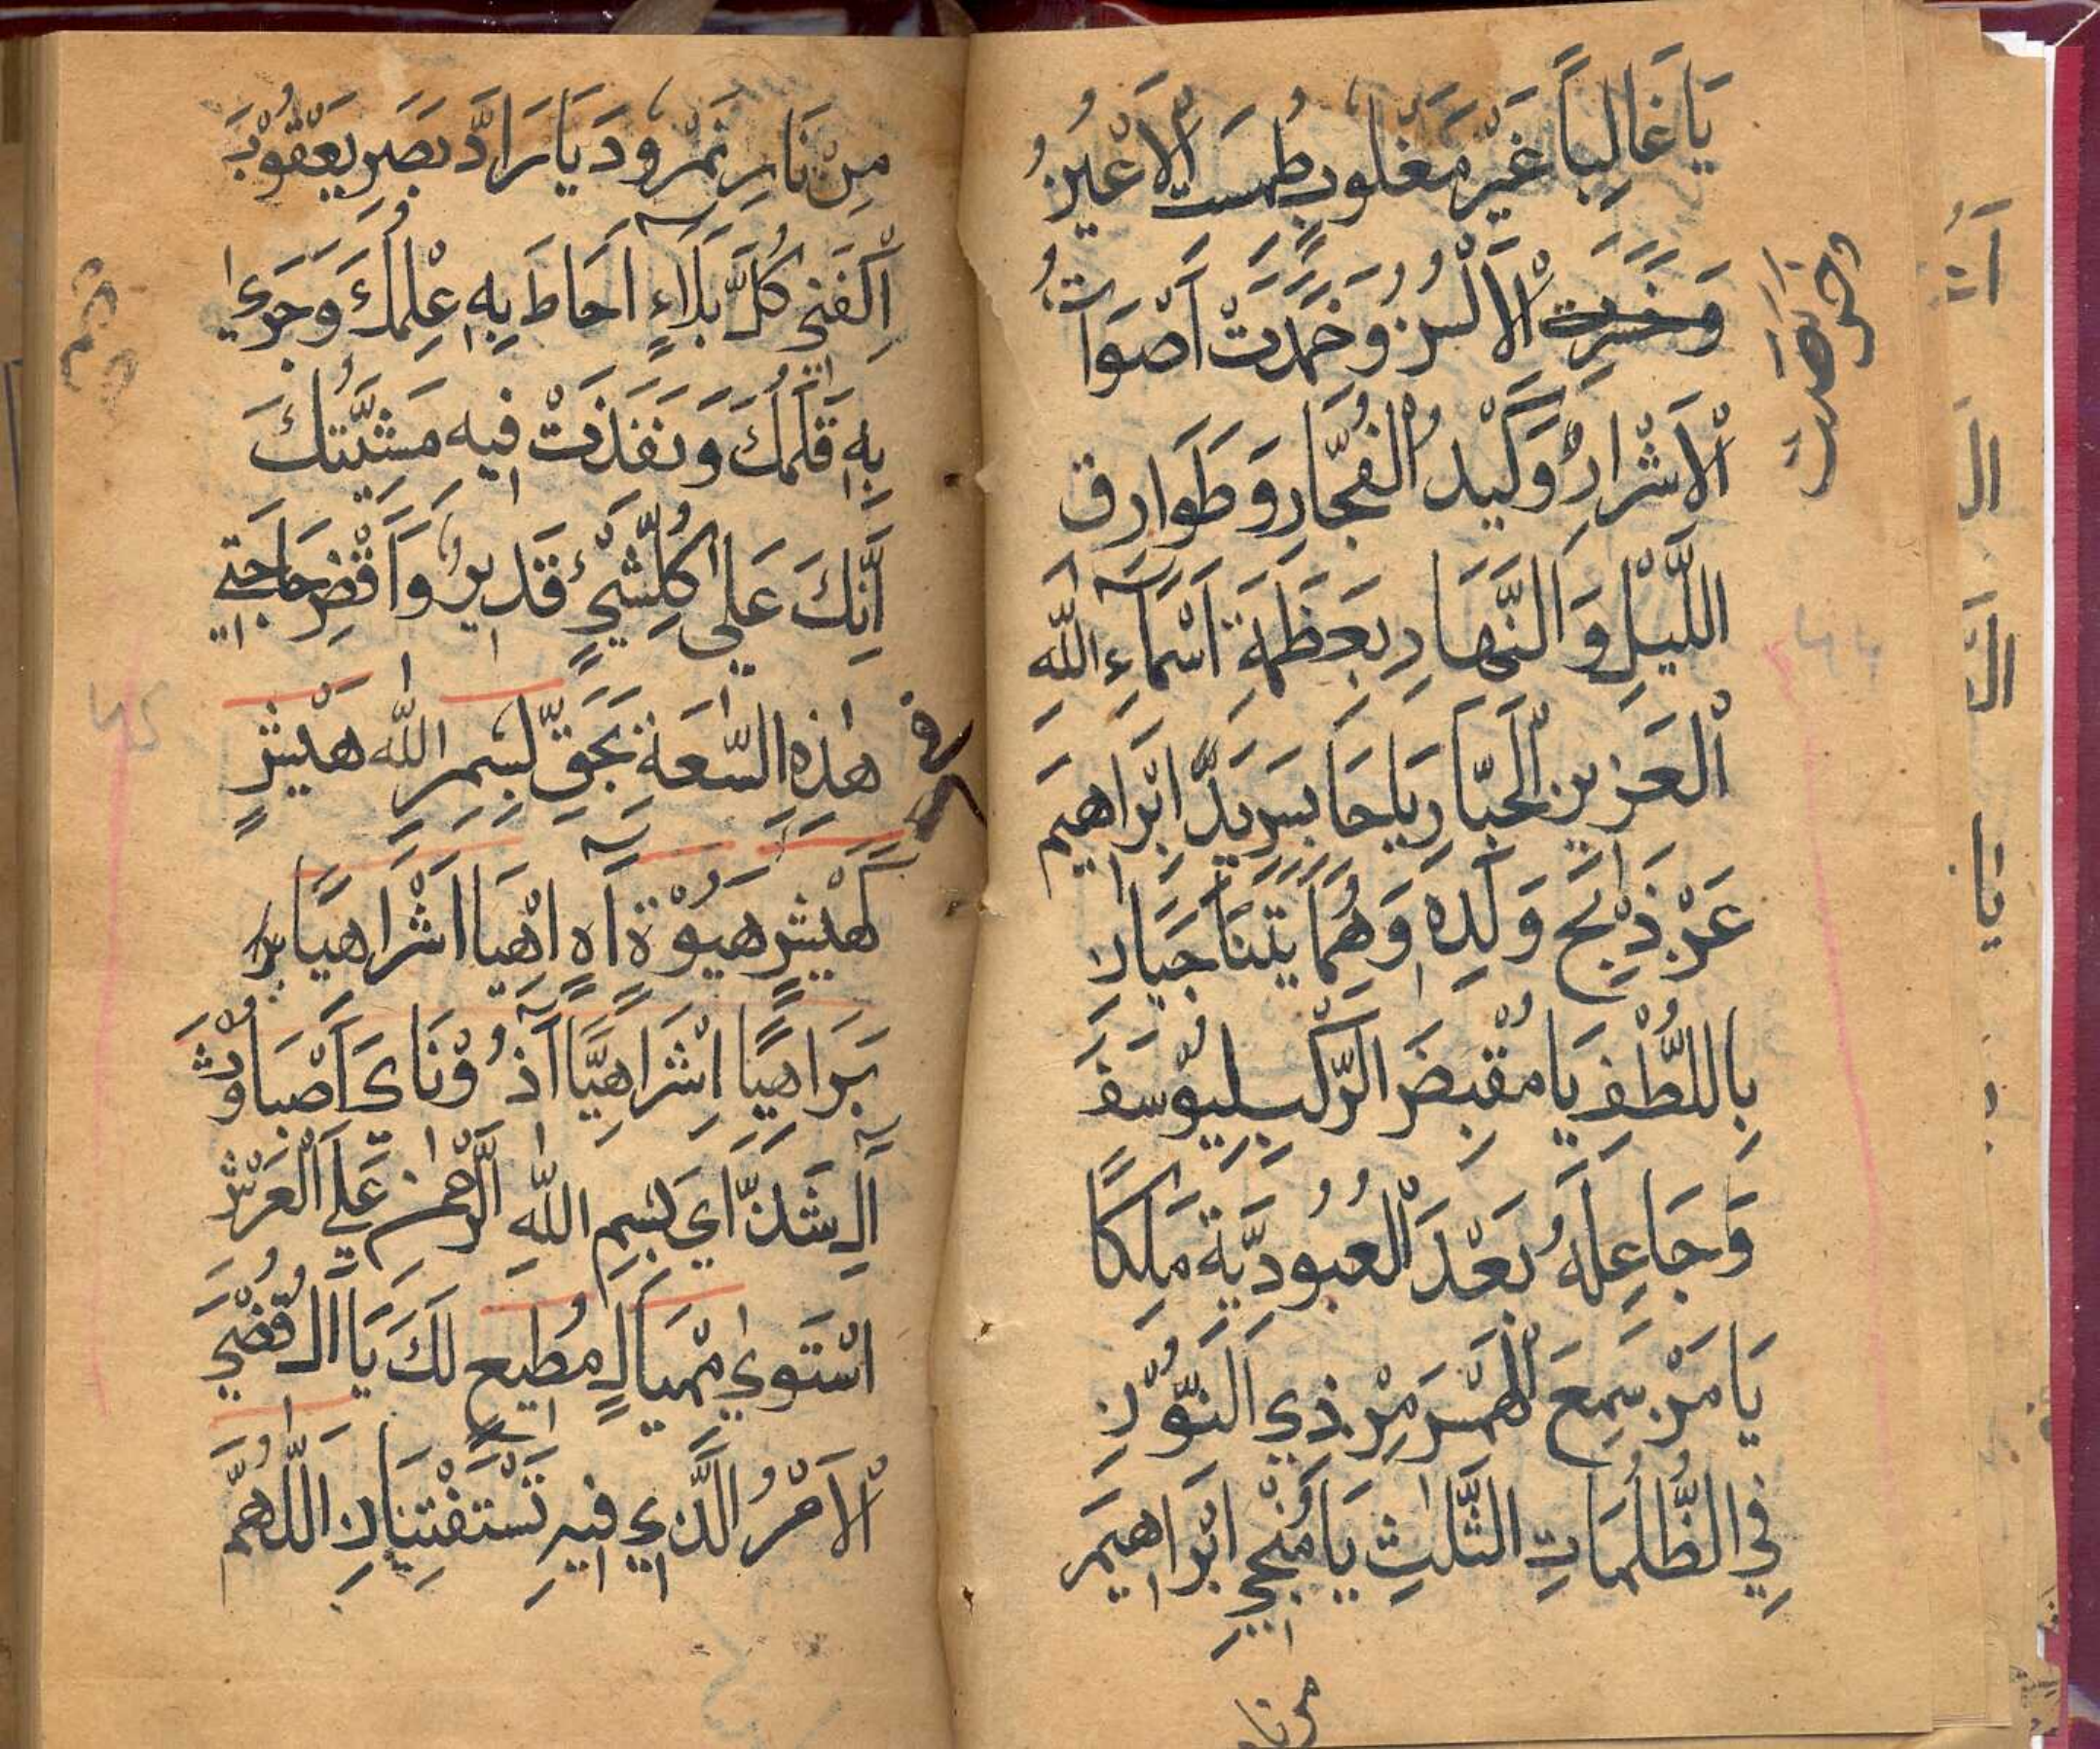 يَا غَالِباً غَيْرَ مَغْلُوبٍ طُمِسَتِ الْاَعْيُنُ
وَخَرِسَتِ الْاَلْسُنُ وَخَمَدَتْ اَصْوَاتُ
الْاَشْرَارِ وَكَيْدُ الْفُجَّارِ وَطَوَارِقِ
اللَّيْلِ وَالنَّهَارِ بِعَظَمَةِ اَسْمَآءِ اللّٰهِ
الْعَزِيزِ الْجَبَّارِ يَا حَابِسَ يَدِ اِبْرَاهِيمَ
عَنْ ذَبْحِ وَلَدِهِ وَهُمَا يَتَنَاجَيَانِ
بِاللُّطْفِ يَا مُقْبِضَ الرَّكْبِ لِيُوْسُفَ
وَجَاعِلَهُ بَعْدَ الْعُبُودِيَّةِ مَلِكًا
يَا مَنْ سَمِعَ الْهَمْسَ مِنْ ذِي النُّوْنِ
فِي الظُّلُمَاتِ الثَّلٰثِ يَا مُنْجِيَ اِبْرَاهِيمَ
مِنْ نَارِ
مِنْ نَارِ نَمْرُودَ يَا رَادَّ بَصَرِ يَعْقُوْبَ
اِكْفِنِي كُلَّ بَلَاءٍ اَحَاطَ بِهِ عِلْمُكَ وَجَرٰي
بِهِ قَلَمُكَ وَنَفَذَتْ فِيهِ مَشِيَّتُكَ
اِنَّكَ عَلٰي كُلِّ شَيْءٍ قَدِيرٌ وَاقْضِ حَاجَتِي
هٰذِهِ السَّعَةِ بِحَقِّ بِسْمِ اللّٰهِ هَيْشٍ
كَهَيْشٍ هَيُوْةٍ اَهٍ اَهْيَا اَشْرَاهِيًا
بَرَاهِيًا اِشْرَاهِيًّا آذُوْنَايَ اَصْبَاوُثَ
آلِ شَدَّاي بِسْمِ اللّٰهِ الرَّحْمٰنِ عَلَي الْعَرْشِ
اسْتَوٰي مْهيَالٍ مُطِيعٍ لَكَ يَا الْ قُضِيَ
الْاَمْرُ الَّذِي فِيهِ تَسْتَفْتِيَانِ اَللّٰهُمَّ